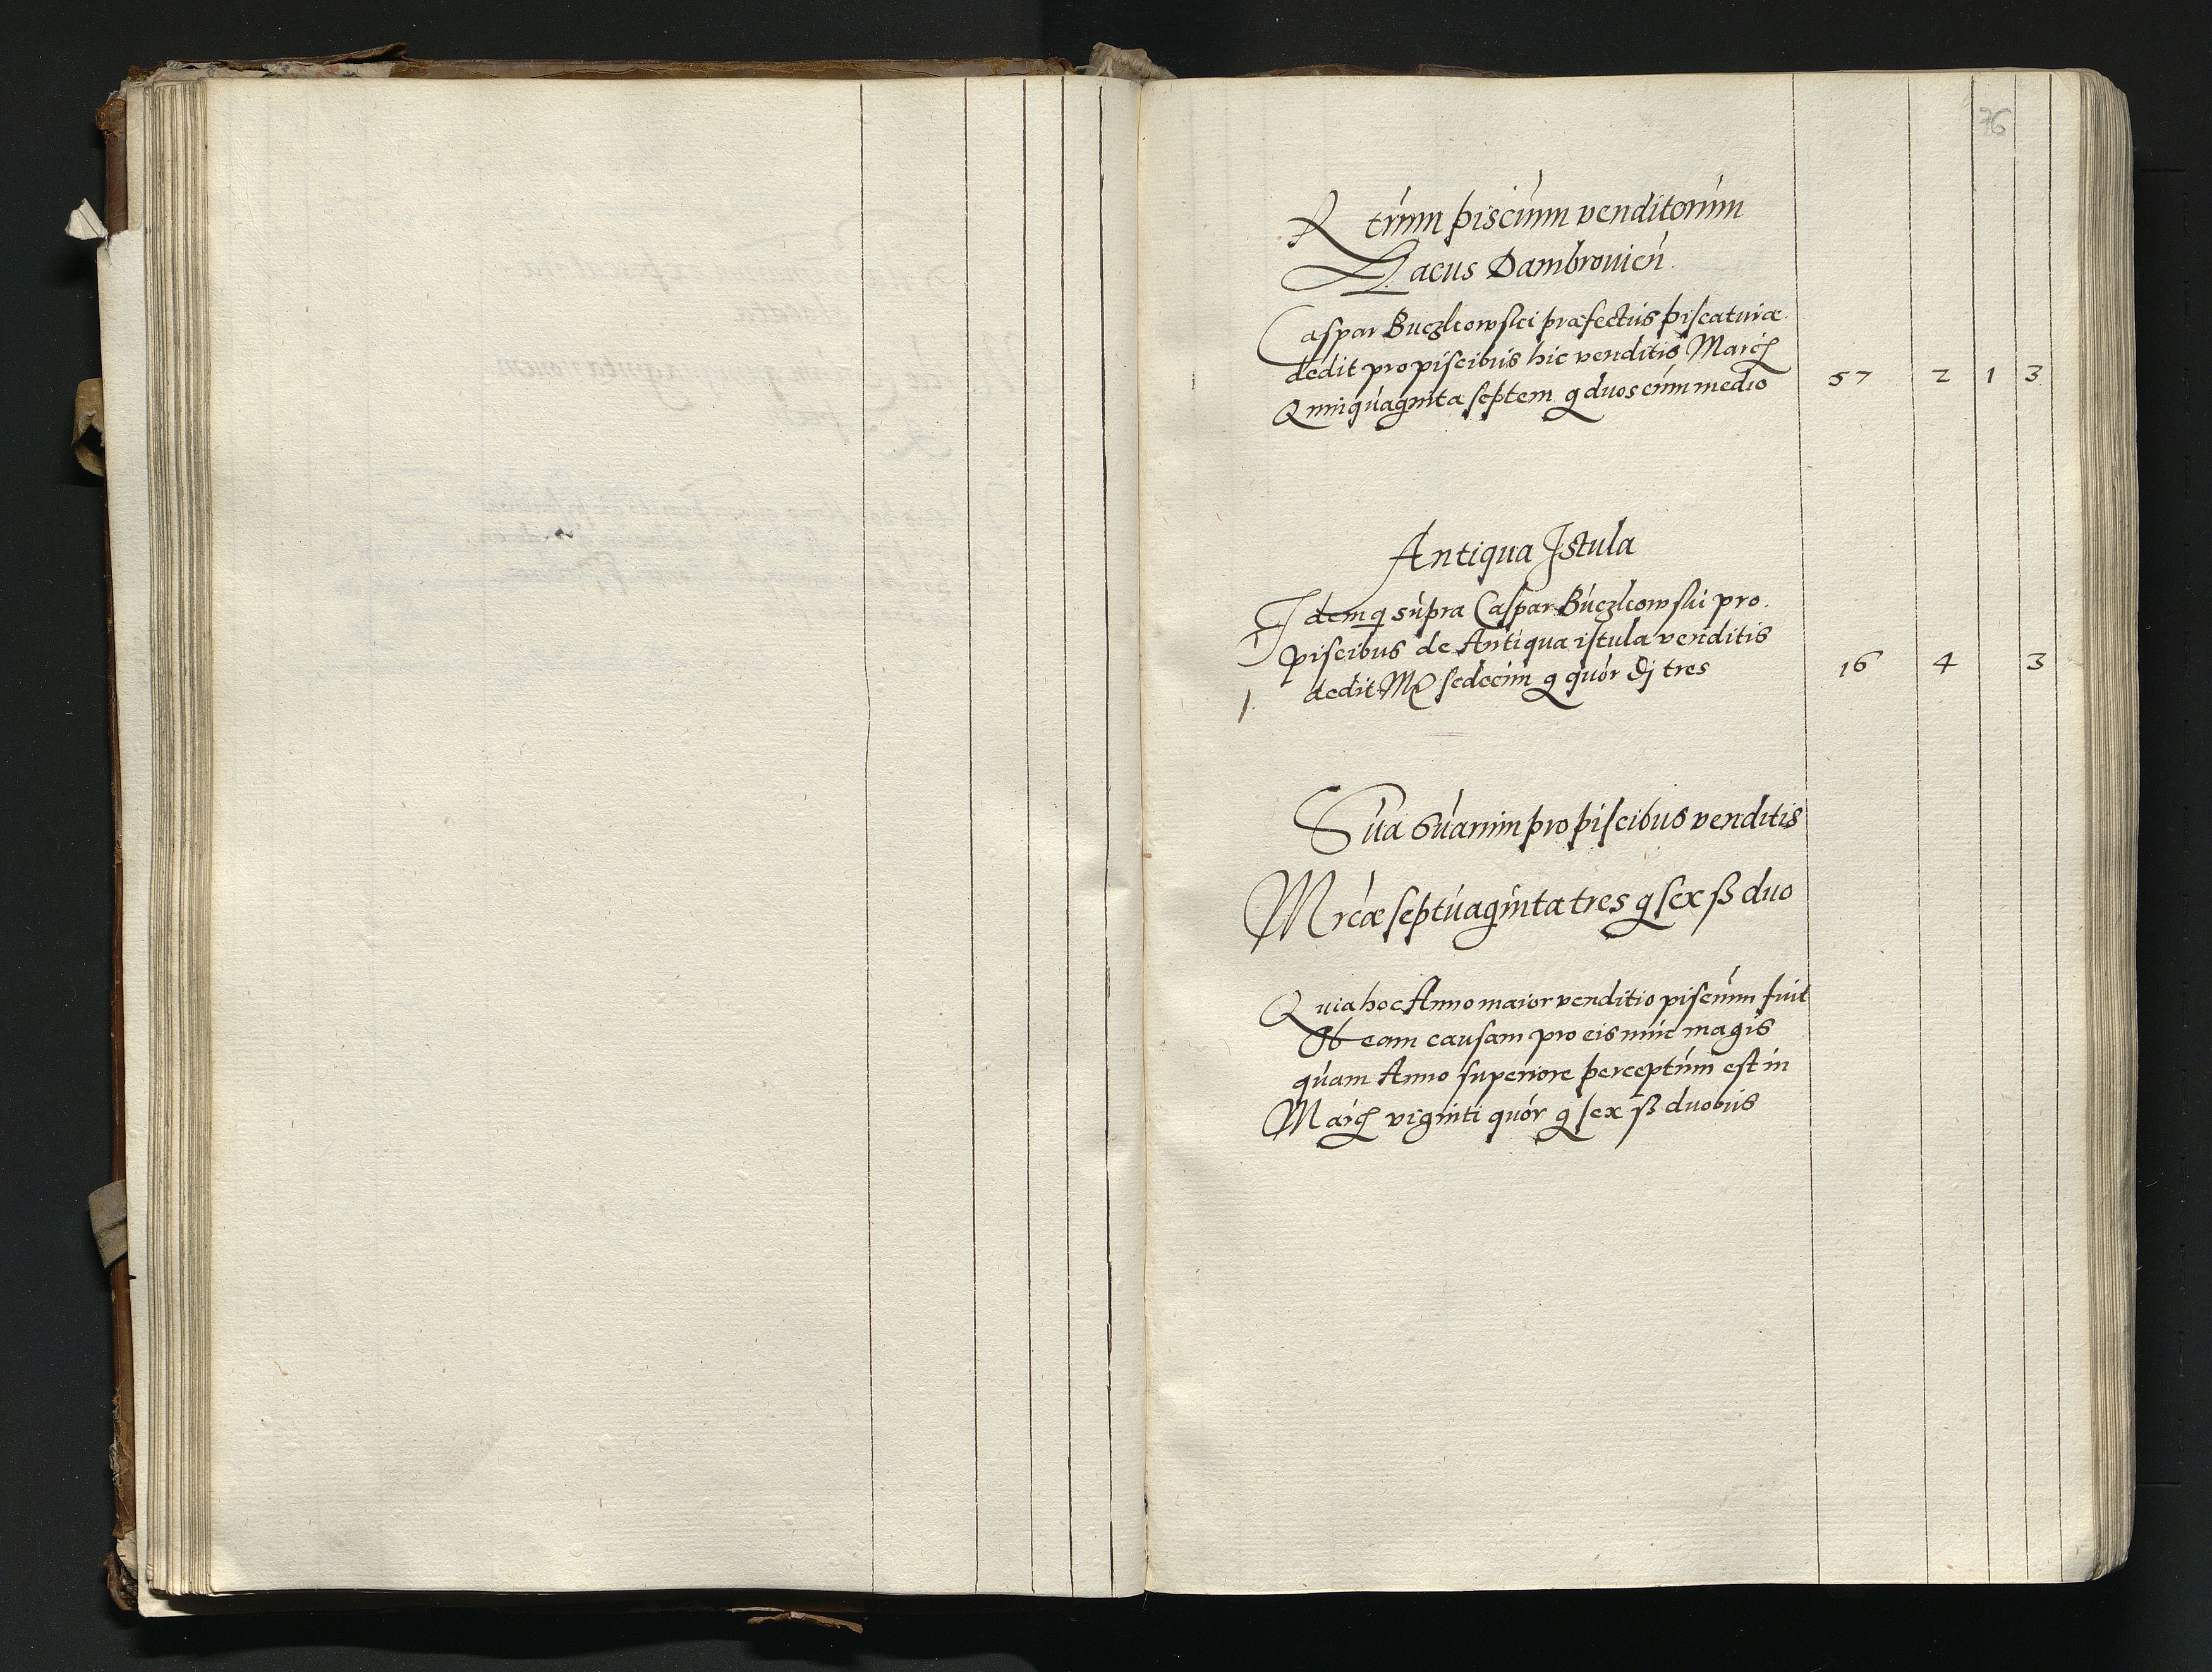 76
Rtrum piscium venditorum
Lacus Dambrouien̄
Caspar Buczkowski præfectus piscaturæ
dedit pro piscibus hic venditis March
Quinquaginta septem g duos cum medio 57 2 1 3
Antiqua Istula
Idem q supra Caspar Buczkowski pro
piscibus de Antiqua istula venditis
dedit Mr sedecim g quor dj tres 16 4 3
1.
Sūa Sūarum pro piscibus venditis
Mrcæ septuaginta tres g sex ß duo
Quia hoc Anno maior venditio piscium fuit
Ob eam causam pro eis nunc magis
quam Anno superiore perceptum est in
March viginti quor g sex ß duobus